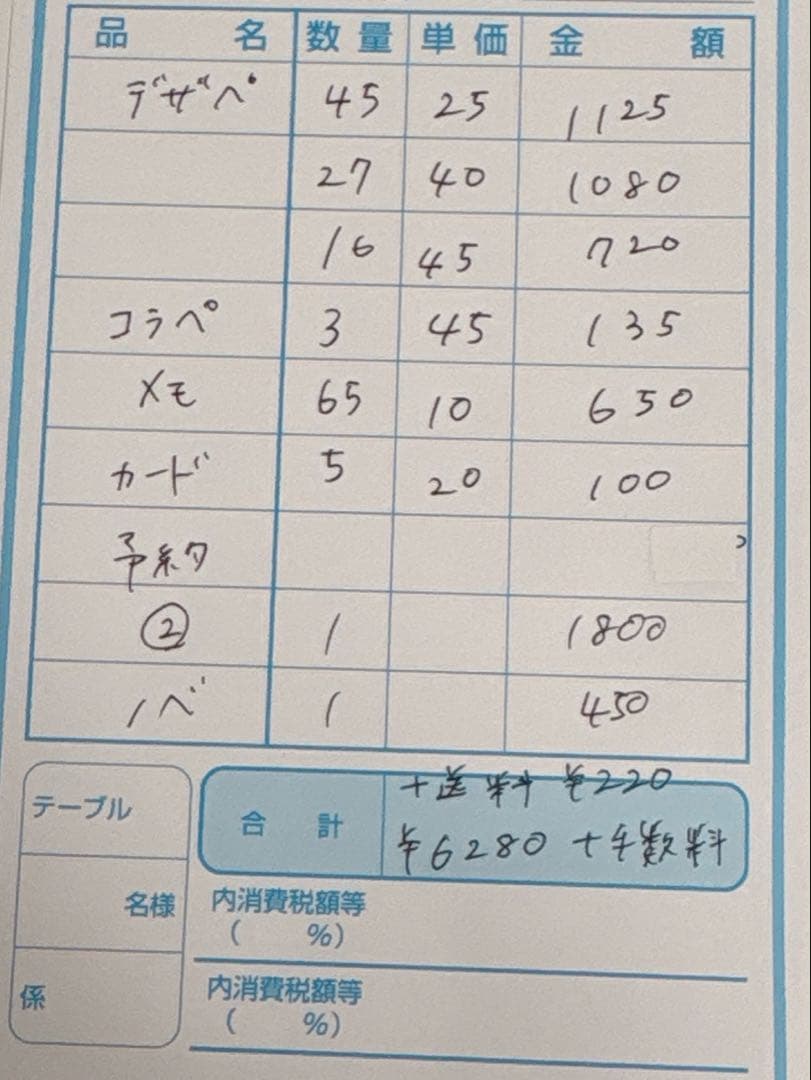 品 名 数量 単価 金 額
デザペ 45 25 1125
27 40 1080
16 45 720
コラペ 3 45 135
メモ 65 10 650
カード 5 20 100
予約
② 1 1800
ノベ 1 450
+送料 ¥220
合 計 ¥6280 +手数料
テーブル
名様
係
内消費税額等
( %)
内消費税額等
( %)